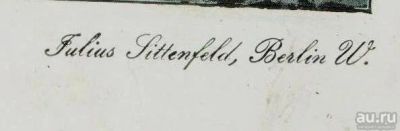 Julius Sittenfeld, Berlin W.
au.ru